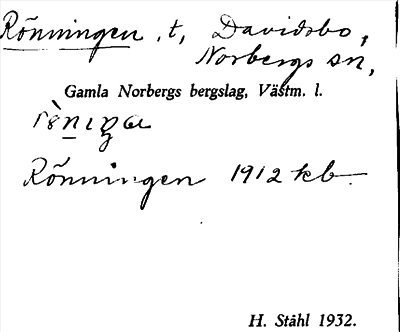 Rönningen, t, Davidsbo,
Norbergs sn,
Gamla Norbergs bergslag, Västm. l.
Rönningen 1912 kb.
H. Ståhl 1932.